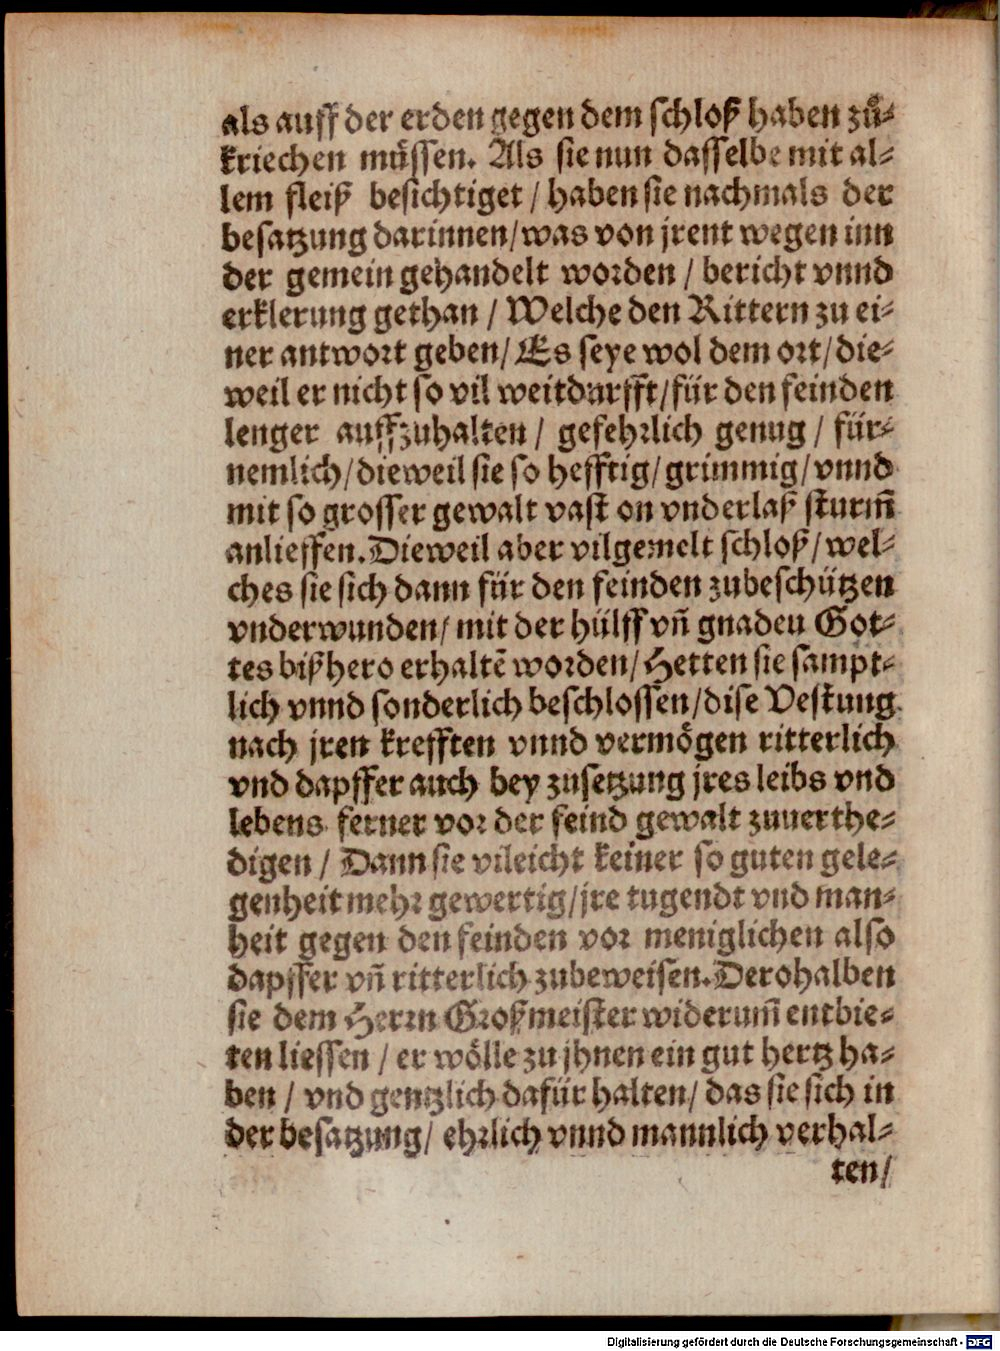 als auff der erden gegen dem schloß haben zů-
kriechen müssen. Als sie nun dasselbe mit al-
lem fleiß besichtiget / haben sie nachmals der
besatzung darinnen/was von jrent wegen inn
der gemein gehandelt worden / bericht vnnd
erklerung gethan / Welche den Rittern zu ei-
ner antwort geben/ Es seye wol dem ort/ die-
weil er nicht so vil weitdurfft/für den feinden
lenger auffzuhalten / gefehrlich genug / für-
nemlich/dieweil sie so hefftig/grimmig/vnnd
mit so grosser gewalt vast on vnderlaß sturm̃
anlieffen.Dieweil aber vilgemelt schloß/wel-
ches sie sich dann für den feinden zubeschützen
vnderwunden/ mit der hülff vñ gnaden Got-
tes bißhero erhaltẽ worden/Hetten sie sampt-
lich vnnd sonderlich beschlossen/dise Vestung
nach jren krefften vnnd vermögen ritterlich
vnd dapffer auch bey zusetzung jres leibs vnd
lebens ferner vor der feind gewalt zuuerthe-
digen / Dann sie vileicht keiner so guten gele-
genheit mehr gewertig/jre tugendt vnd man-
heit gegen den feinden vor meniglichen also
dapffer vñ ritterlich zubeweisen.Derohalben
sie dem Herrn Großmeister widerum̃ entbie-
ten liessen / er wölle zu jhnen ein gut hertz ha-
ben / vnd gentzlich dafür halten/ das sie sich in
der besatzung/ ehrlich vnnd mannlich verhal-
ten/
Digitalisierung gefördert durch die Deutsche Forschungsgemeinschaft - DFG